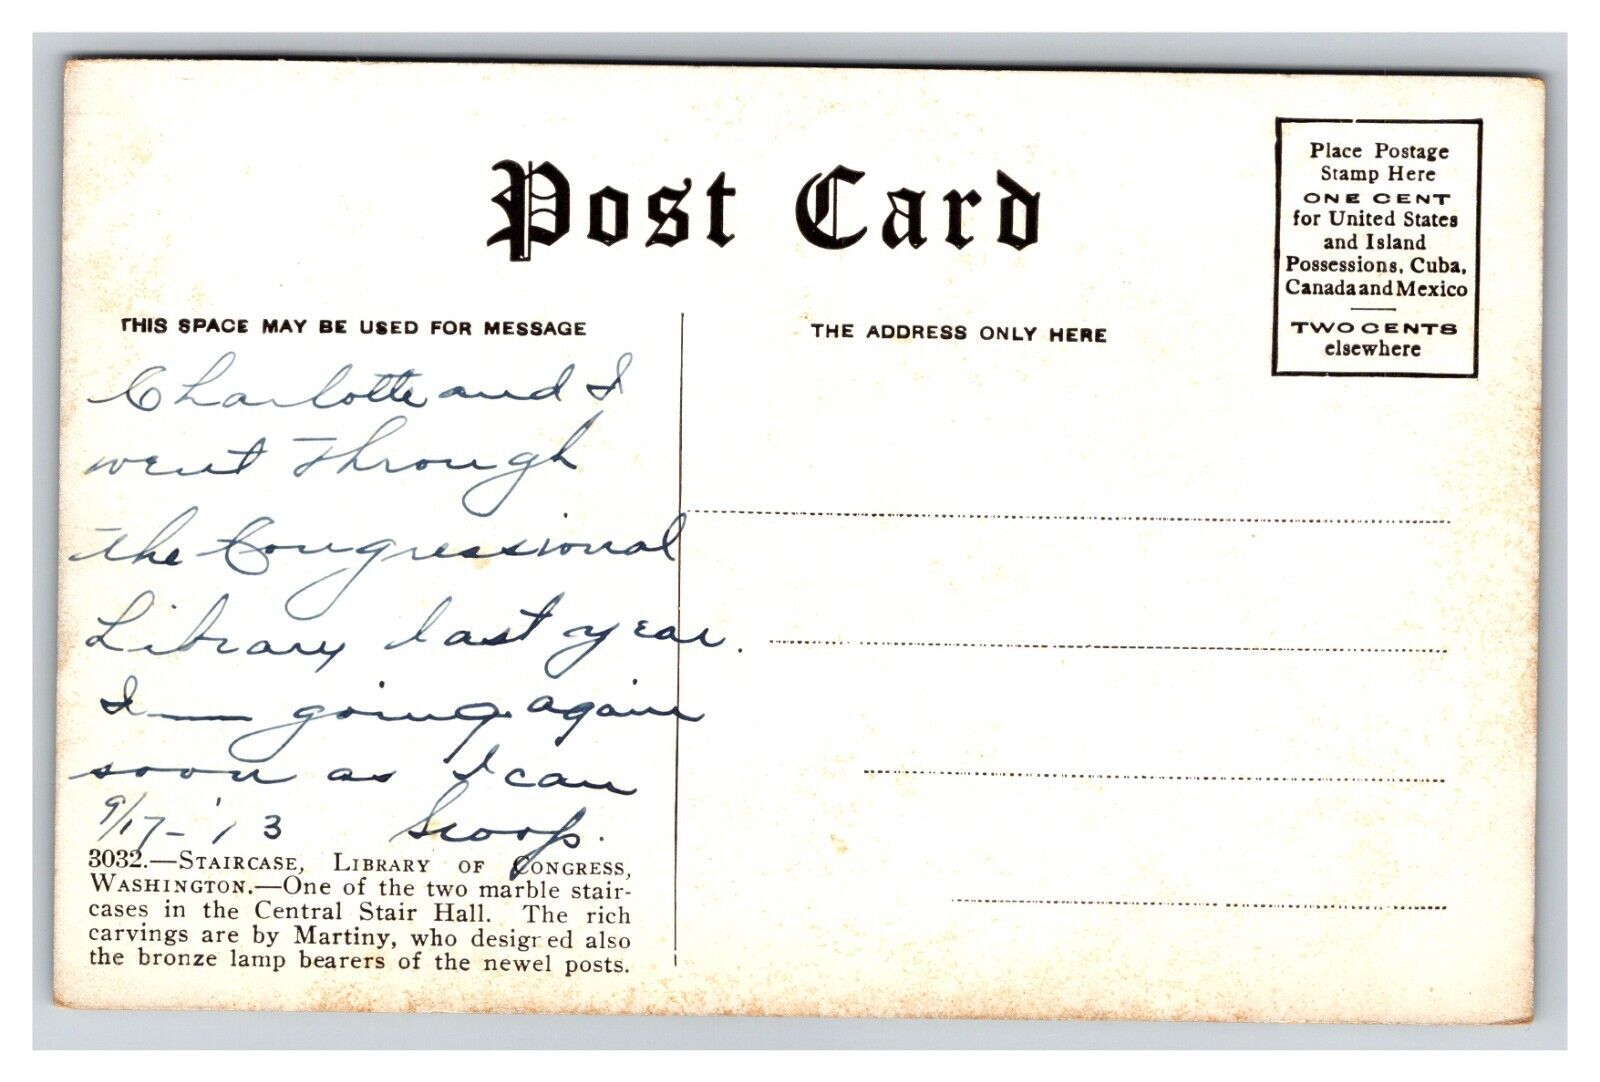 Post Card
Place Postage
Stamp Here
ONE CENT
for United States
and Island
Possessions, Cuba,
Canada and Mexico
TWO CENTS
elsewhere
THIS SPACE MAY BE USED FOR MESSAGE
THE ADDRESS ONLY HERE
Charlotte and I
went through
the Congressional
Library last year.
I — going again
soon as I can
9/17-'13 Scoop.
3032.—STAIRCASE, LIBRARY OF CONGRESS,
WASHINGTON.—One of the two marble stair-
cases in the Central Stair Hall. The rich
carvings are by Martiny, who designed also
the bronze lamp bearers of the newel posts.